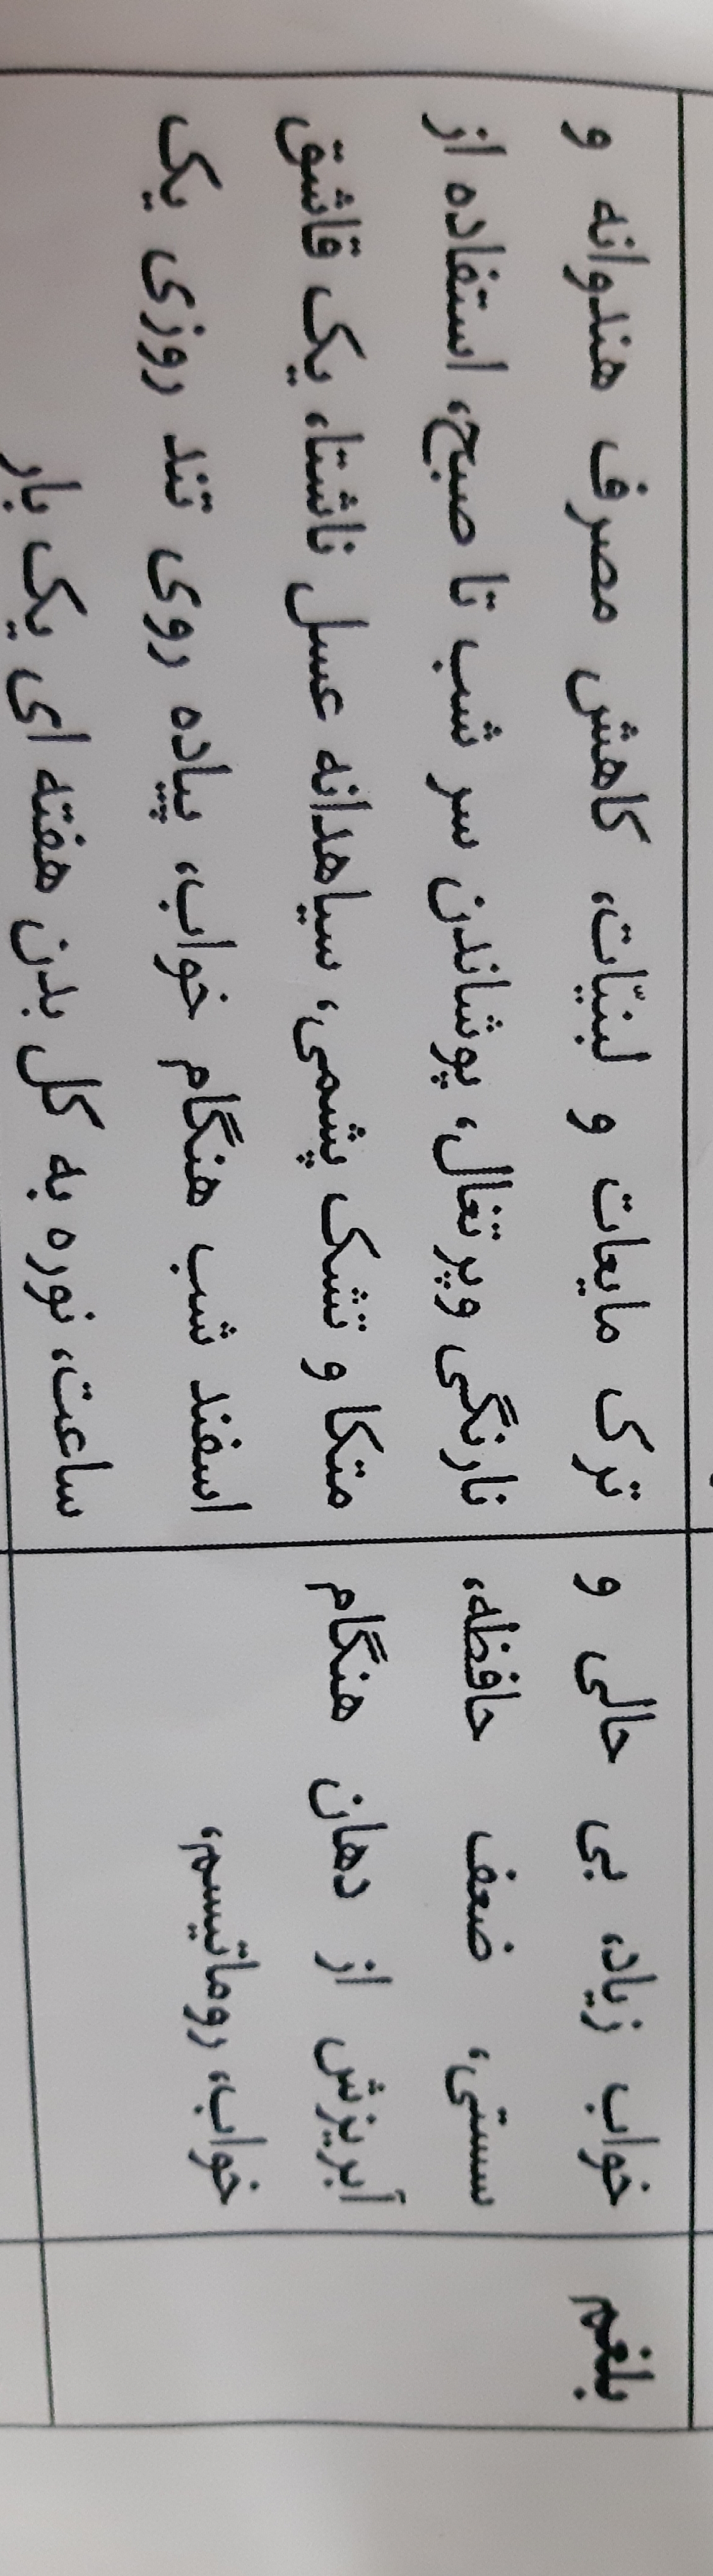 بلغم
خواب زیاد، بی حالی و
سستی، ضعف حافظه،
آبریزش از دهان هنگام
خواب، روماتیسم،
ترک مایعات و لبنیّات، کاهش مصرف هندوانه و
نارنگی وپرتغال، پوشاندن سر شب تا صبح، استفاده از
متکا و تشک پشمی، سیاهدانه عسل ناشتا، یک قاشق
اسفند شب هنگام خواب، پیاده روی تند روزی یک
ساعت، نوره به کل بدن هفته ای یک بار